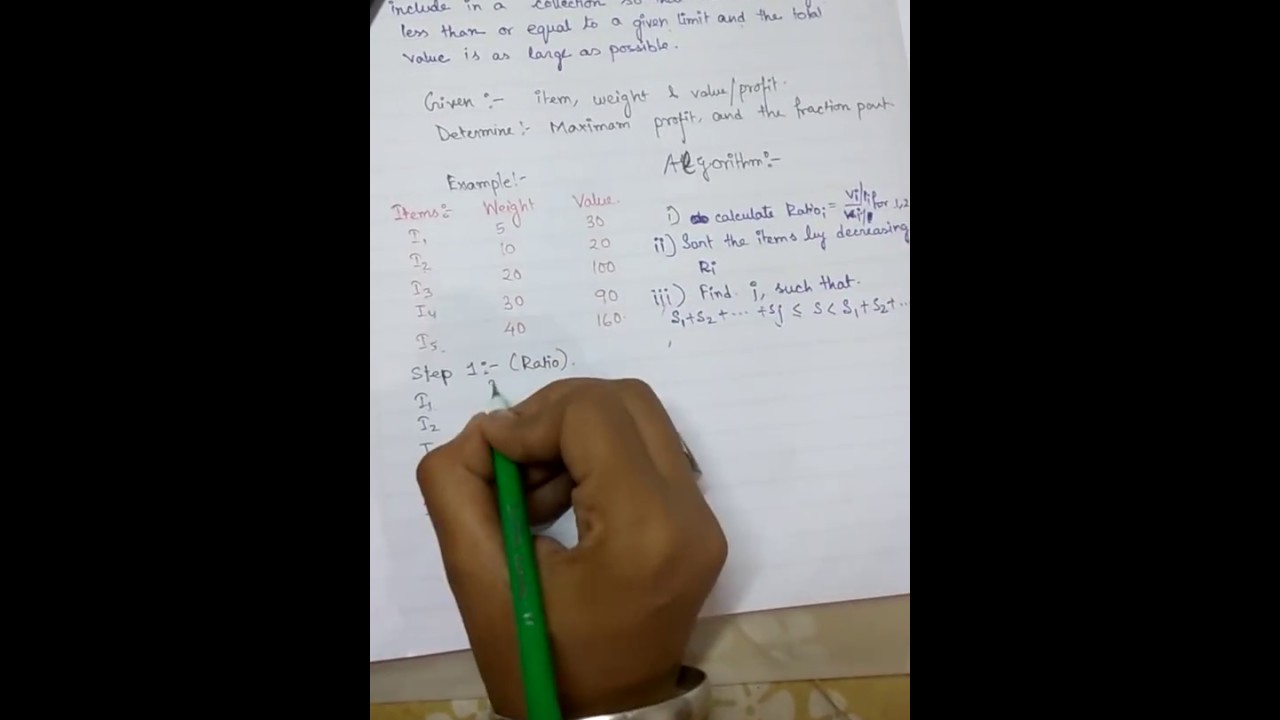 include in a collection so
less than or equal to a given limit and the total
value is as large as possible.
Given :- item, weight & value/profit.
Determine :- Maximam profit, and the fraction part
Example :-
Items :- Weight Value.
I1 5 30
I2 10 20
I3 20 100
I4 30 90
I5. 40 160.
Step 1 :- (Ratio).
I1
I2
Algorithm :-
i) calculate Ratioi = for 1,2
ii) Sort the items by decreasing
Ri
iii) Find j, such that.
S1+S2+... +Sj ≤ S < S1+S2+..